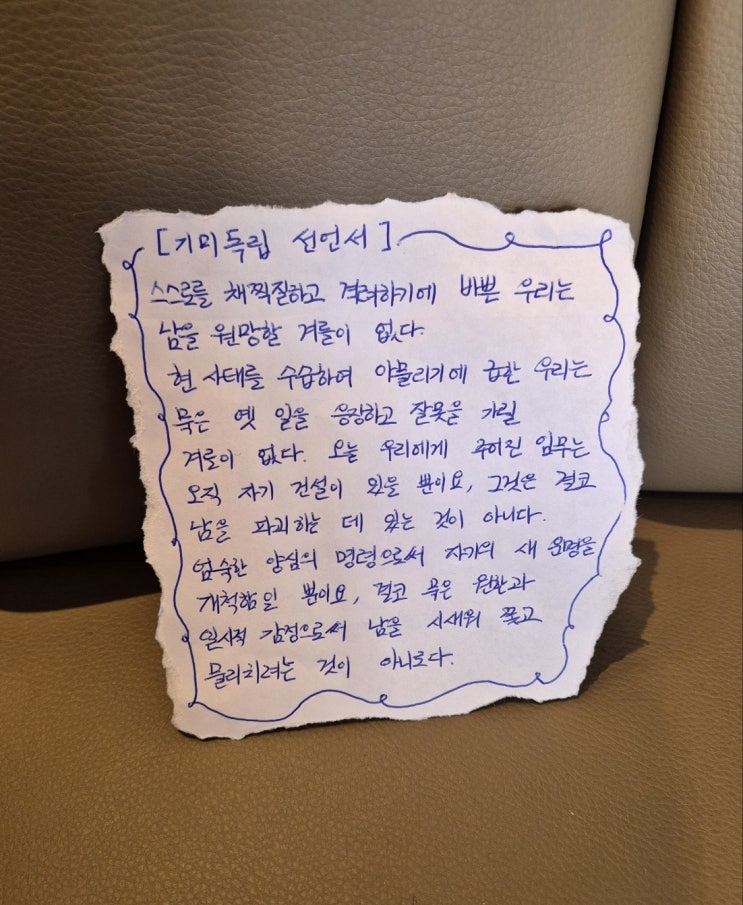 [기미독립 선언서]
스스로를 채찍질하고 격려하기에 바쁜 우리는
남을 원망할 겨를이 없다.
현 사태를 수습하여 아물리기에 급한 우리는
묵은 옛 일을 응징하고 잘못을 가릴
겨를이 없다. 오늘 우리에게 주어진 임무는
오직 자기 건설이 있을 뿐이요, 그것은 결코
남을 파괴하는 데 있는 것이 아니다.
엄숙한 양심의 명령으로써 자기의 새 운명을
개척함일 뿐이요, 결코 묵은 원한과
일시적 감정으로써 남을 시새워 쫓고
물리치려는 것이 아니로다.